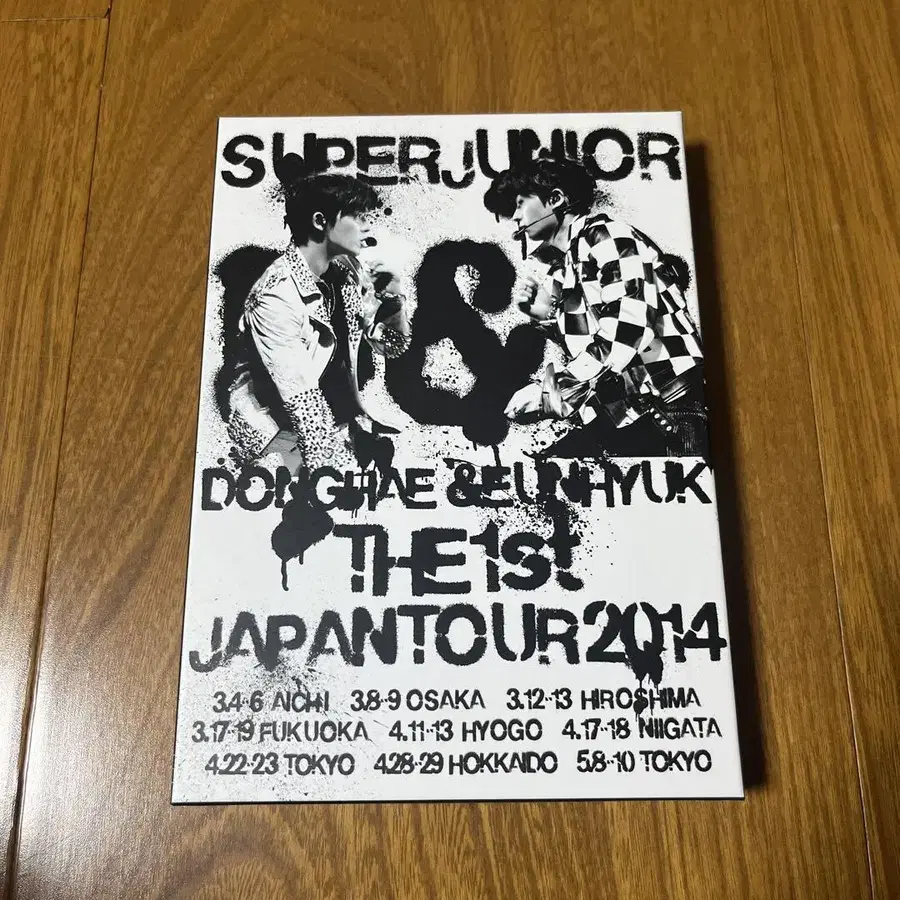 SUPER JUNIOR
D&E
DONGHAE & EUNHYUK
THE 1st
JAPAN TOUR 2014
3.4-6 AICHI 3.8-9 OSAKA 3.12-13 HIROSHIMA
3.17-19 FUKUOKA 4.11-13 HYOGO 4.17-18 NIIGATA
4.22-23 TOKYO 4.28-29 HOKKAIDO 5.8-10 TOKYO